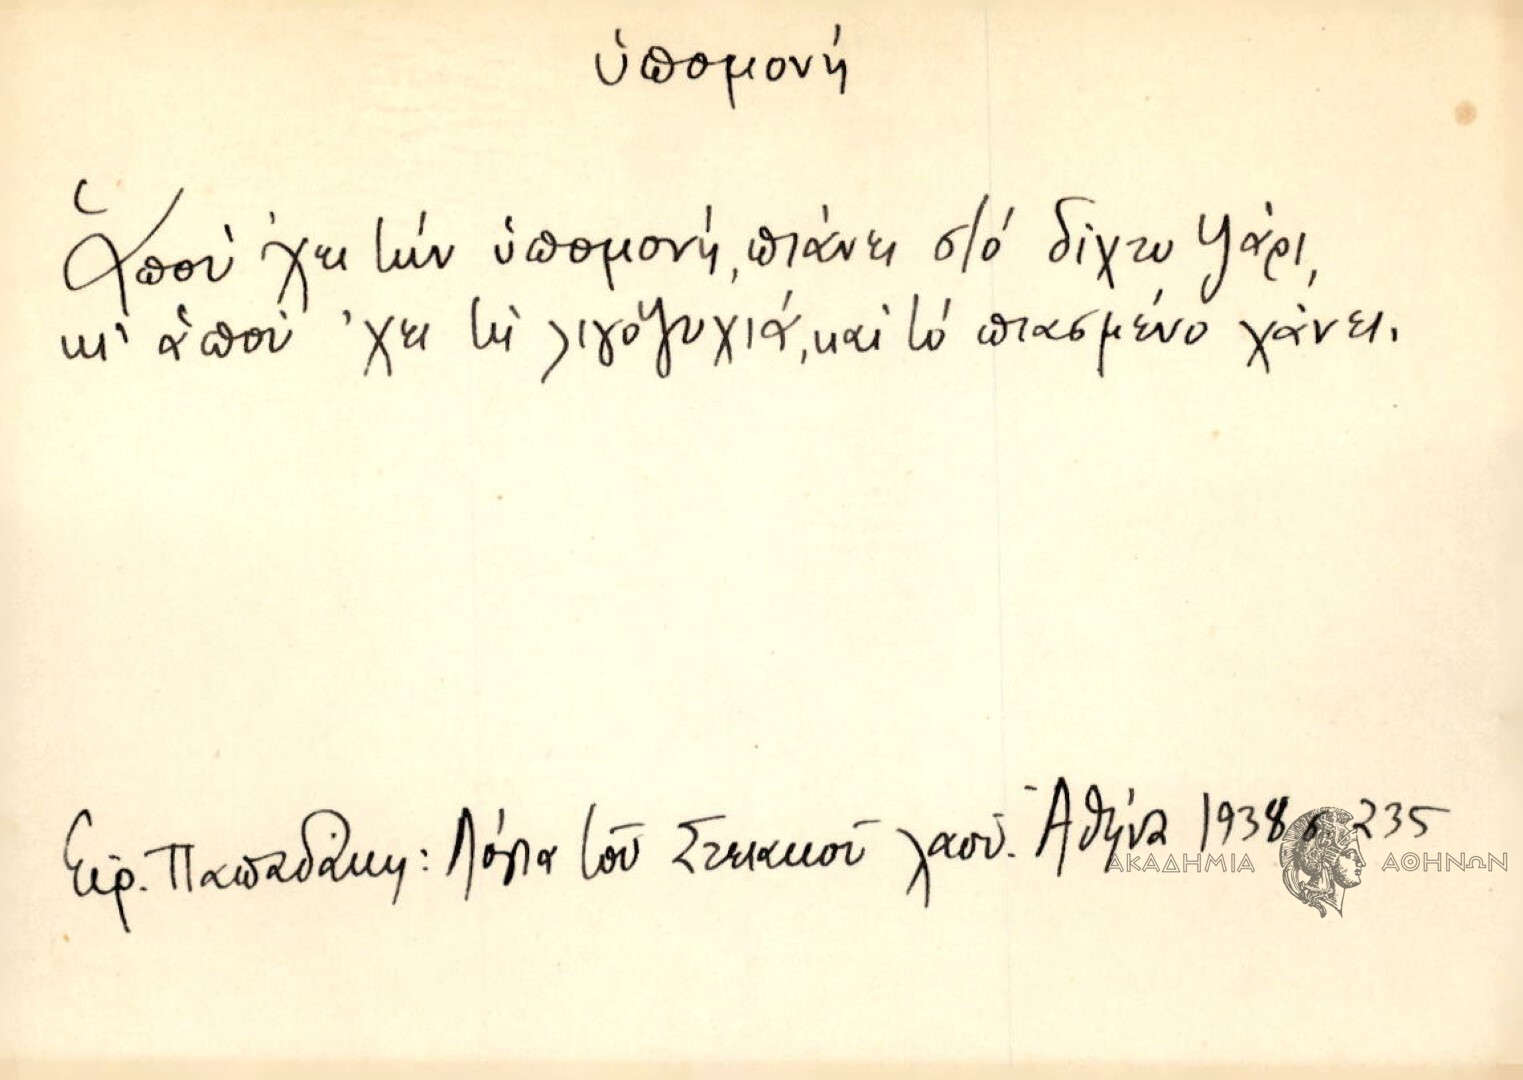 ὑπομονή
Ἁποὺ 'χει τὴν ὑπομονή, πιάνει στὸ δίχτυ ψάρι,
κι' ἁποὺ 'χει τὴ λιγοψυχιά, καὶ τὸ πιασμένο χάνει.
Εἰρ. Παπαδάκη: Λόγια τοῦ Στειακοῦ λαοῦ. Ἀθήνα 1938 σ. 235
ΑΚΑΔΗΜΙΑ ΑΘΗΝΩΝ